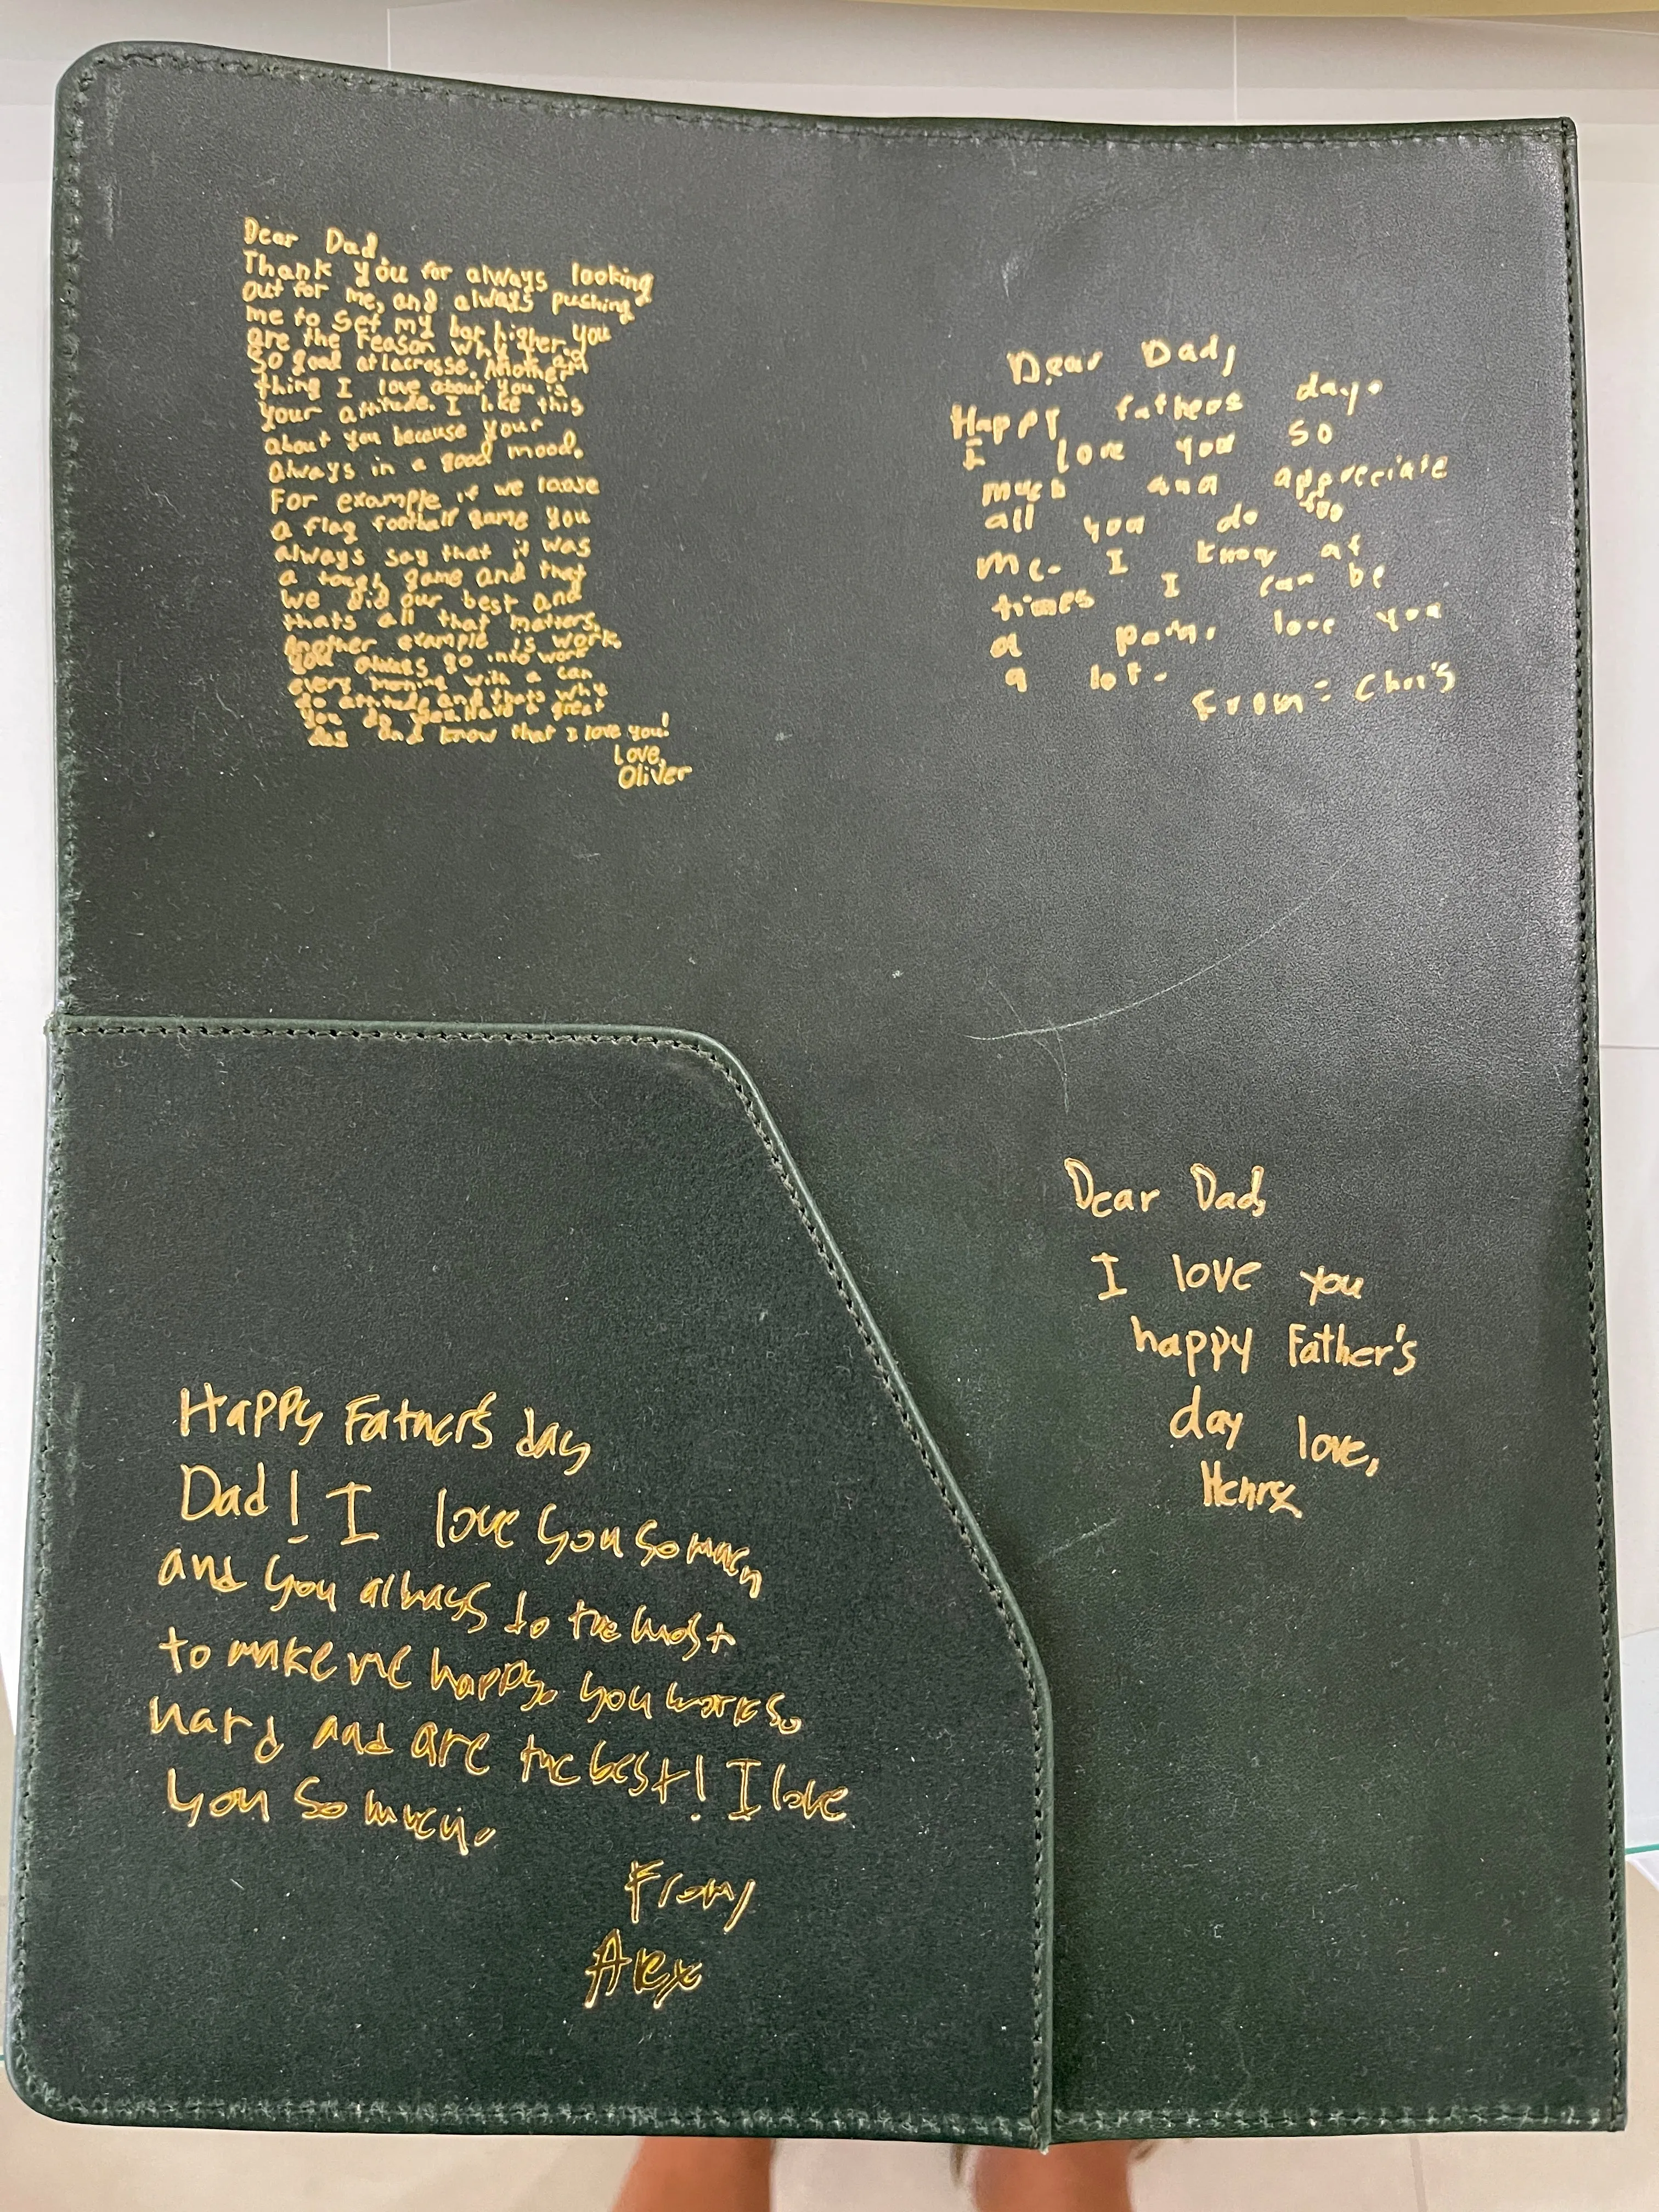 Dear Dad,
Thank you for always looking
out for me, and always pushing
me to set my bar higher. You
are the reason why I am
so good at lacrosse. Another
thing I love about you is
your attitude. I like this
about you because your
always in a good mood.
For example if we loose
a flag football game you
always say that it was
a tough game and that
we did our best and
thats all that matters.
Another example is work.
You always go into work
every morning with a can
do attitude and thats why
you do you. Have a great
day and know that I love you!
Love,
Oliver
Dear Dad,
Happy fathers day.
I love you so
much and appreciate
all you do for
me. I know at
times I can be
a pain. love you
a lot.
From: Chris
Happy Father's day
Dad! I love you so much
and you always do the most
to make me happy. You work so
hard and are the best! I love
you so much.
From,
Alex
Dear Dad,
I love you
happy Father's
day love,
Henry